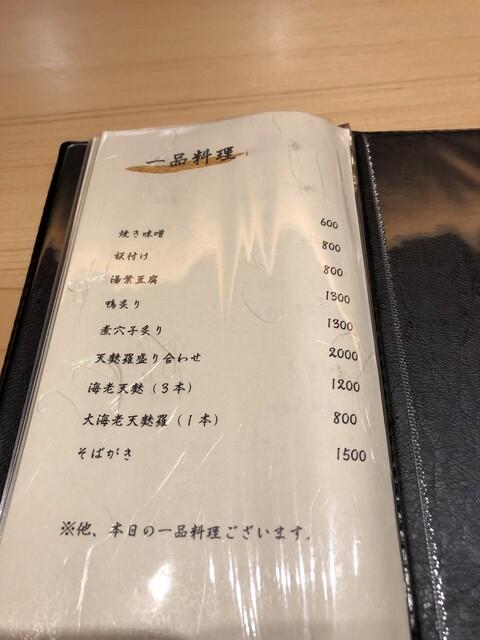 一品料理
焼き味噌 600
板付け 800
湯葉豆腐 800
鴨炙り 1300
煮穴子炙り 1300
天麩羅盛り合わせ 2000
海老天麩（３本） 1200
大海老天麩羅（１本） 800
そばがき 1500
※他、本日の一品料理ございます。